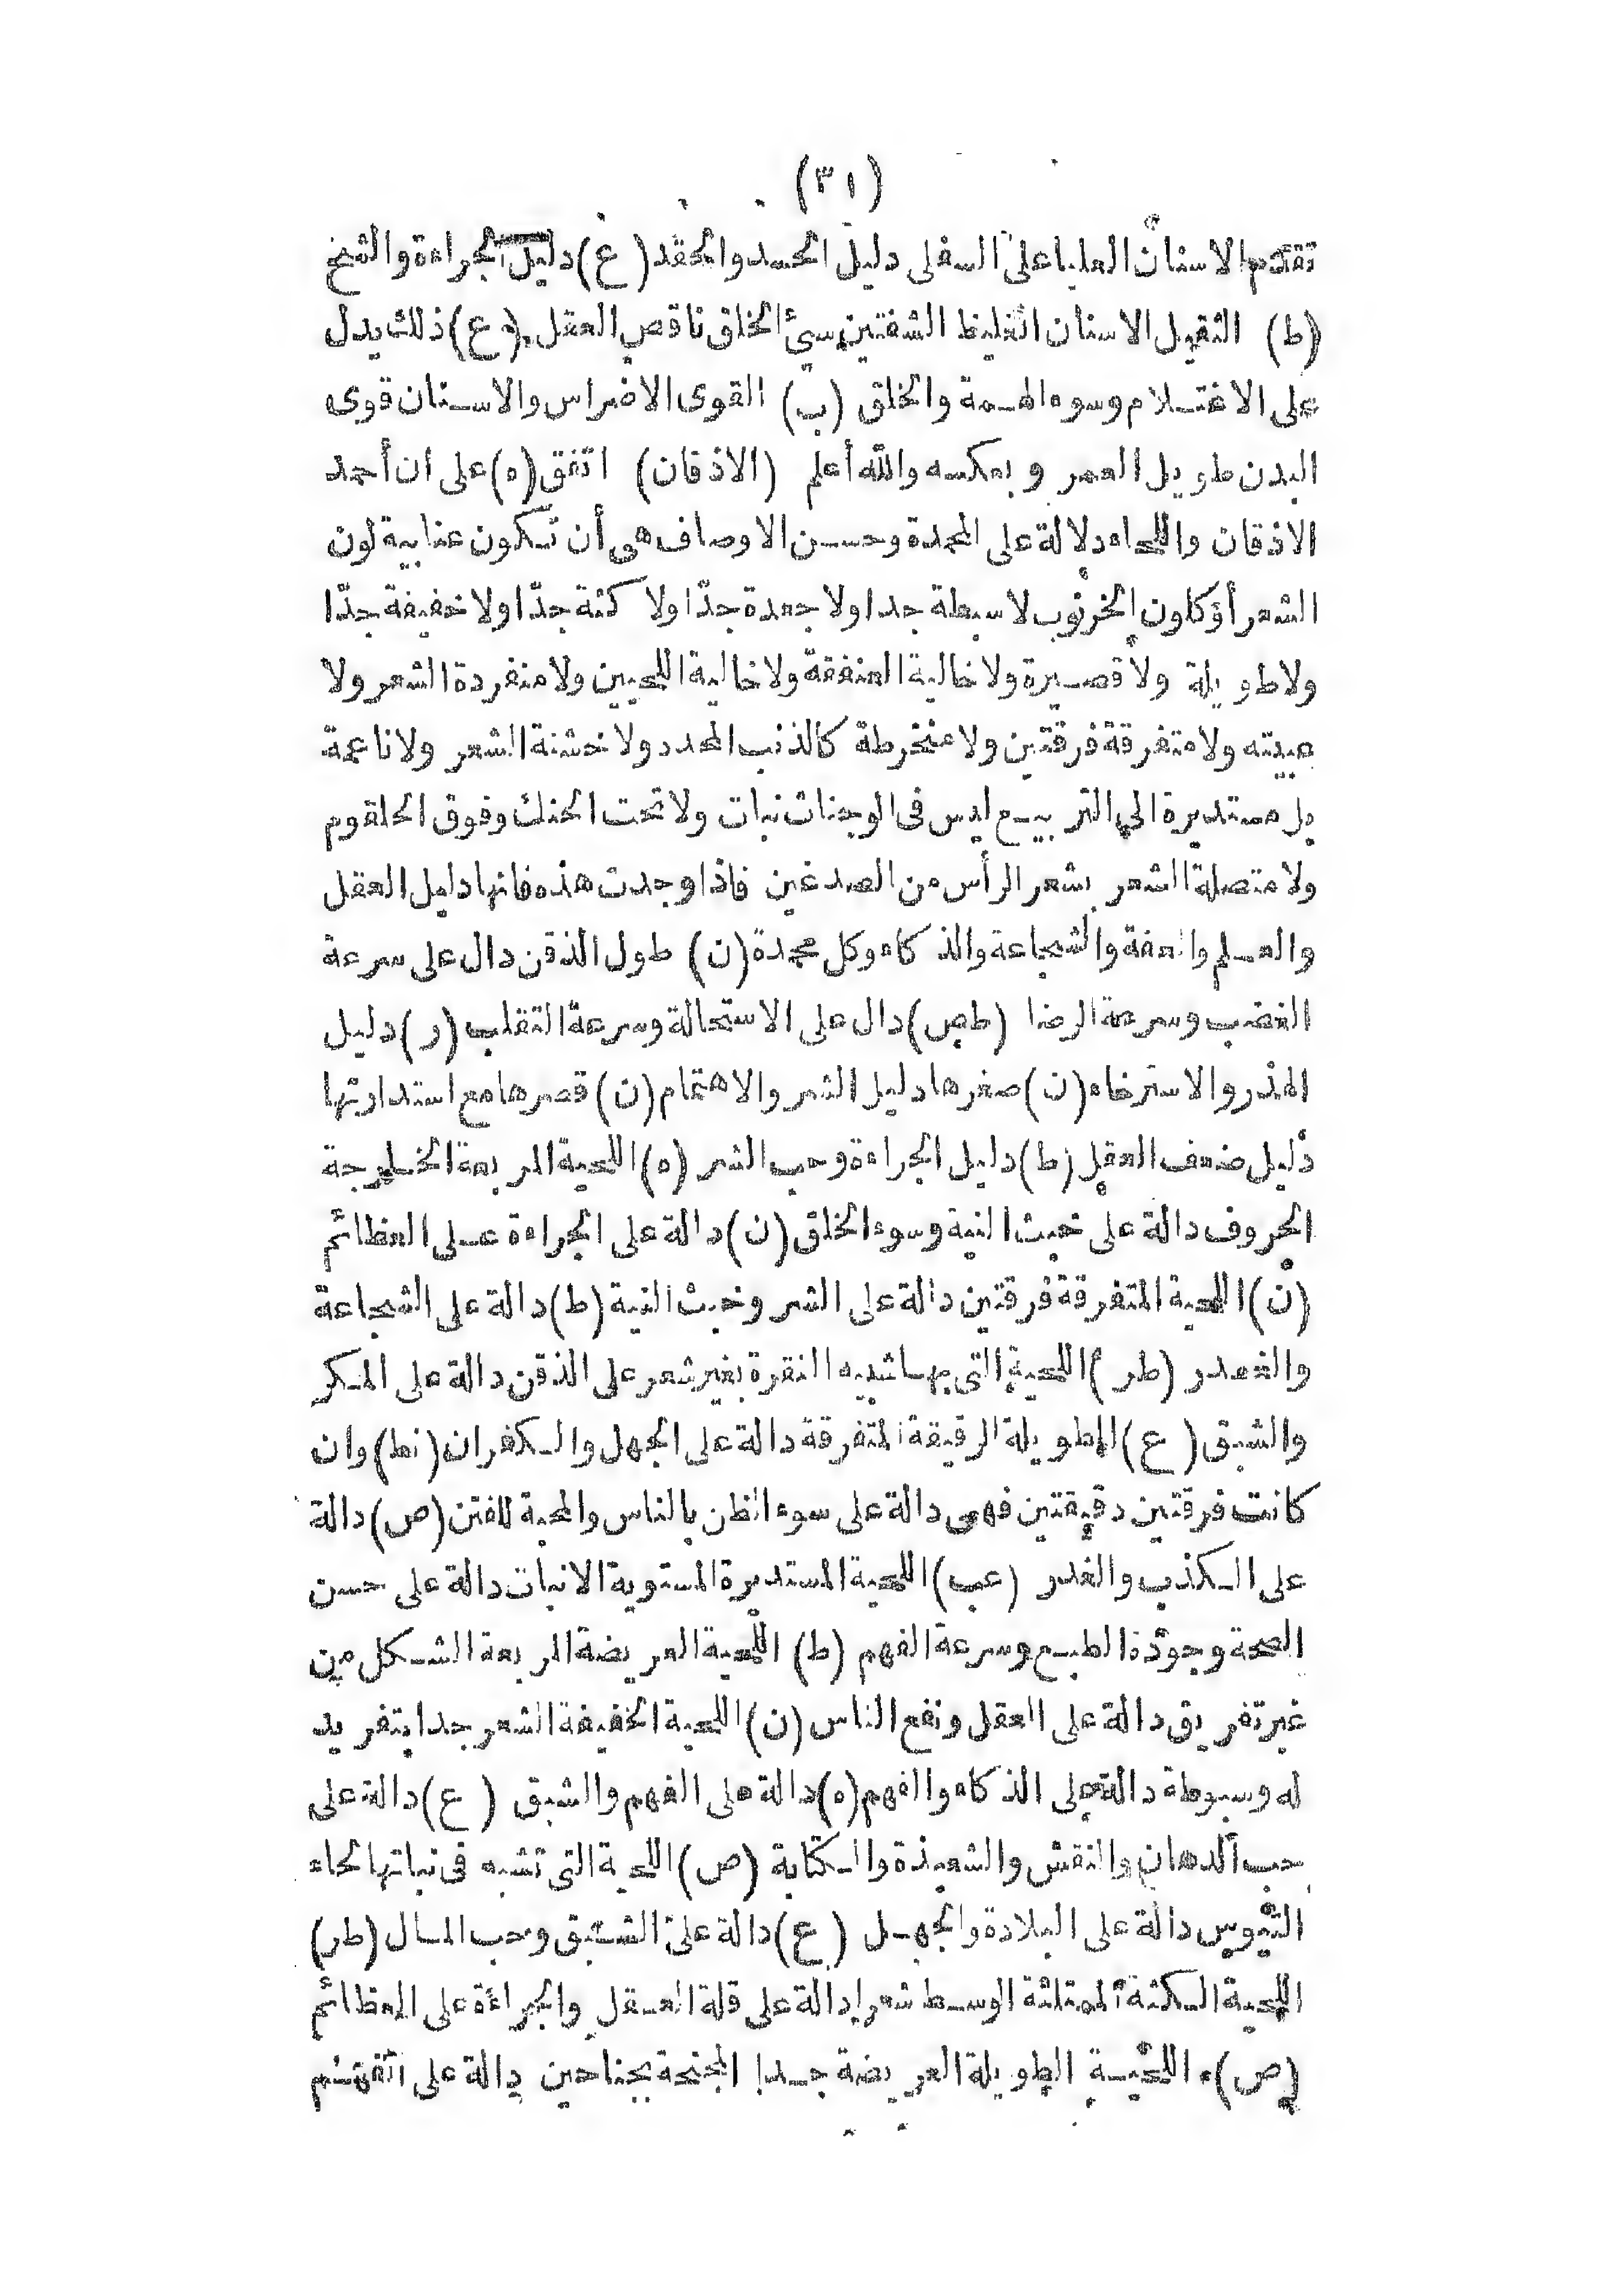 (٣١)
تقدم الاسنان العليا على السفلى دليل الحسد والحقد (ع) دليل الجراءة والشخ
(ط) الثقيل الاسنان الغليظ الشفتين سيئ الخلق ناقص العقل (ع) ذلك يدل
على الاغتلام وسوء الهمة والخلق (ب) القوى الاضراس والاسنان قوى
البدن طويل العمر وبعكسه والله أعلم (الاذقان) اتفق (ه) على ان أحمد
الاذقان واللحاء دلالة على المحمدة وحسن الاوصاف هى أن تكون عنابية لون
الشعر أو كلون الخرنوب لا سبطة جدا ولا جعدة جدّا ولا كثة جدّا ولا خفيفة جدّا
ولا طويلة ولا قصيرة ولا خالية العنفقة ولا خالية اللحيين ولا منفردة الشعر ولا
ولا متفرقة فرقتين ولا منخرطة كالذنب المحدد ولا خشنة الشعر ولا ناعمة
بل مستديرة الى التربيع ليس فى الوجنات نبات ولا تحت الحنك وفوق الحلقوم
ولا متصلة الشعر بشعر الرأس من الصدغين فاذا وجدت هذه فانها دليل العقل
والعلم والعفة والشجاعة والذكاء وكل محمدة (ن) طول الذقن دال على سرعة
الغضب وسرعة الرضا (طص) دال على الاستحالة وسرعة التقلب (ر) دليل
الهذر والاسترخاء (ن) صغرها دليل الشر والاهتمام (ن) قصرها مع استدارتها
دليل ضعف العقل (ط) دليل الجراءة وحب الشر (ه) اللحية المربعة الخارجة
الحروف دالة على خبث النية وسوء الخلق (ن) دالة على الجراءة على العظائم
(ن) اللحية المتفرقة فرقتين دالة على الشر وخبث النية (ط) دالة على الشجاعة
والغدر (طر) اللحية التى بها شبيه النقرة بغير شعر على الذقن دالة على المكر
والشبق (ع) الطويلة الرقيقة المتفرقة دالة على الجهل والكفران (نط) وان
كانت فرقتين دقيقتين فهى دالة على سوء الظن بالناس والمحبة للفتن (ص) دالة
على الكذب والغدر (عب) اللحية المستديرة المستوية الانبات دالة على حسن
الصحة وجودة الطبع وسرعة الفهم (ط) اللحية العريضة المربعة الشكل من
غير تفريق دالة على العقل ونفع الناس (ن) اللحية الخفيفة الشعر جدا بتفريد
له وسبوطة دالة على الذكاء والفهم (ه) دالة على الفهم والشبق (ع) دالة على
حب الدهان والنقش والشعبذة والكتابة (ص) اللحية التى تشبه فى نباتها لحاء
التيوس دالة على البلادة والجهل (ع) دالة على الشبق وحب المال (طر)
اللحية الكثة الممتلئة الوسط شعرا دالة على قلة العقل والجراءة على العظائم
(ص) اللحية الطويلة العريضة جدا المجنحة بجناحين دالة على